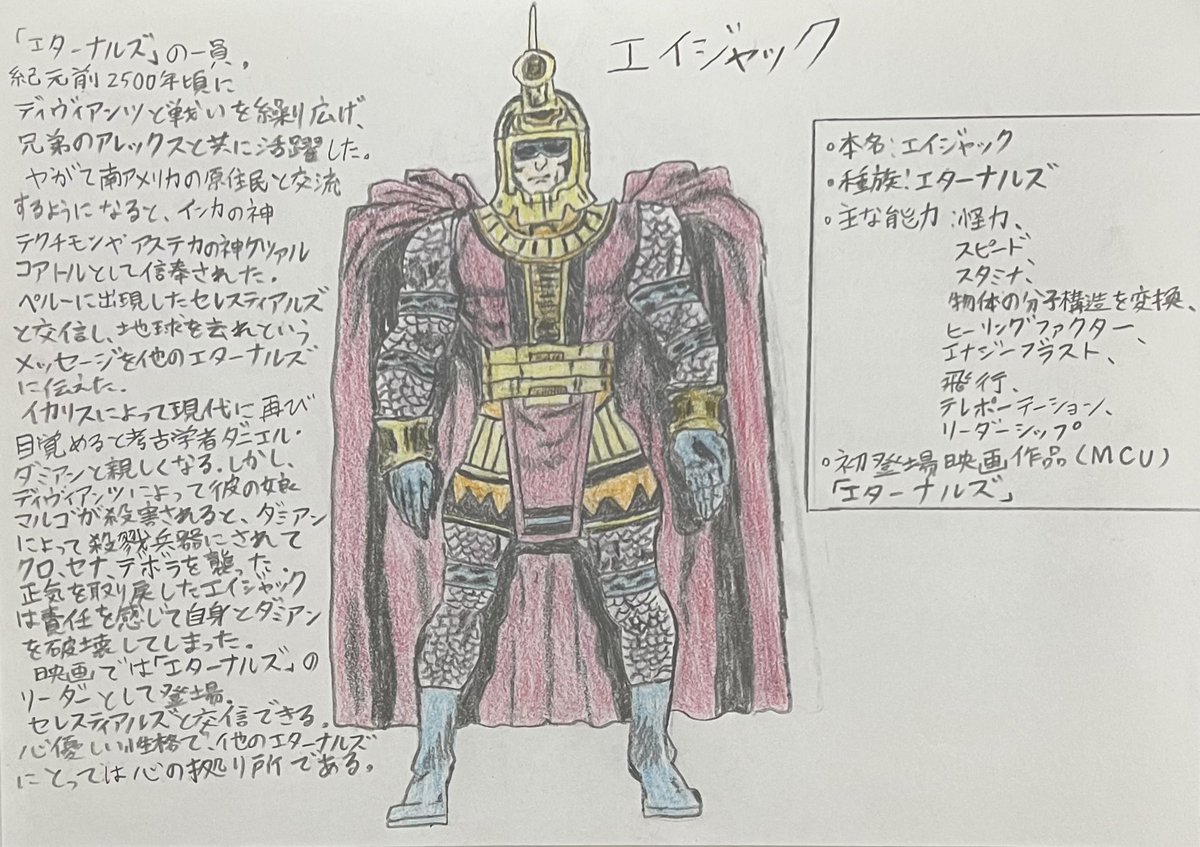 エイジャック
「エターナルズ」の一員。
紀元前2500年頃に
ディヴィアンツと戦いを繰り広げ、
兄弟のアレックスと共に活躍した。
やがて南アメリカの原住民と交流
するようになると、インカの神
テクチモンやアステカの神ケツァル
コアトルとして信奉された。
ペルーに出現したセレスティアルズ
と交信し、地球を去れという
メッセージを他のエターナルズ
に伝えた。
イカリスによって現代に再び
目覚めると考古学者ダニエル・
ダミアンと親しくなる。しかし、
ディヴィアンツによって彼の娘
マルゴが殺害されると、ダミアン
によって殺戮兵器にされて
クロ、セナ、デボラを襲った。
正気を取り戻したエイジャック
は責任を感じて自身とダミアン
を破壊してしまった。
映画では「エターナルズ」の
リーダーとして登場。
セレスティアルズと交信できる。
心優しい性格で、他のエターナルズ
にとっては心の拠り所である。
○本名:エイジャック
○種族:エターナルズ
○主な能力:怪力、
スピード、
スタミナ、
物体の分子構造を変換、
ヒーリングファクター、
エナジーブラスト、
飛行、
テレポーテーション、
リーダーシップ
○初登場映画作品(MCU)
「エターナルズ」